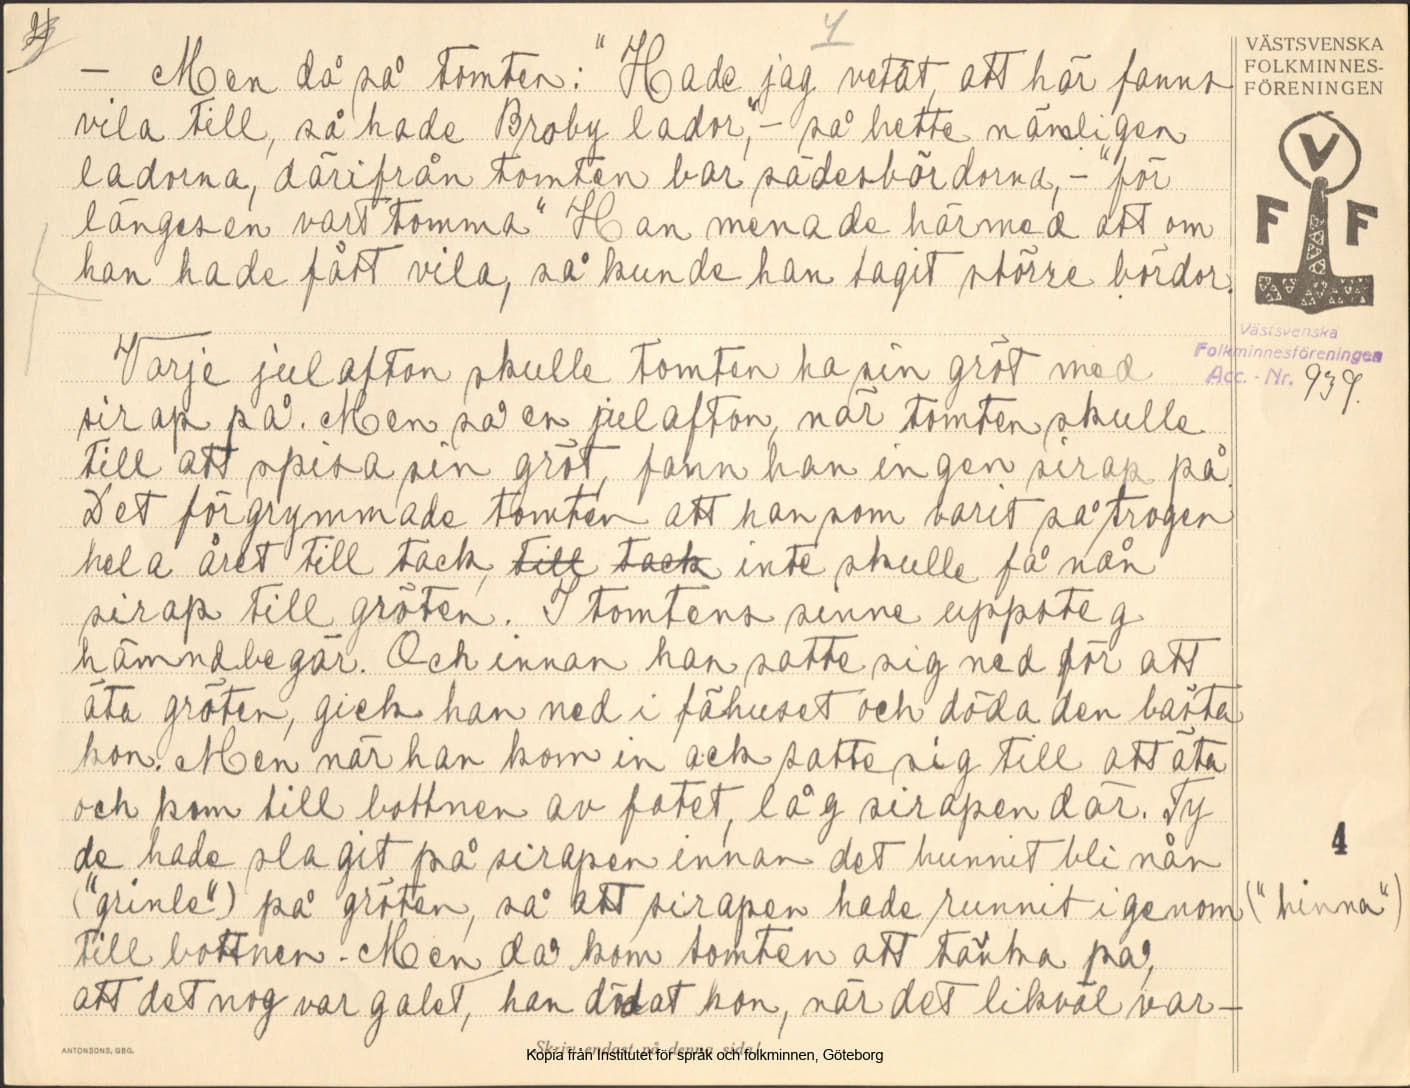 4
VÄSTSVENSKA
FOLKMINNES-
FÖRENINGEN
V
F F
— Men då sa tomten: "Hade jag vetat, att här fanns
vila till, så hade Broby lador," – så hette nämligen
ladorna, därifrån tomten bar sädesbördorna, – "för
längesen vart tomma" Han menade härmed att om
han hade fått vila, så kunde han tagit större bördor.
Västsvenska
Folkminnesföreningen
Acc. - Nr. 939.
Varje julafton skulle tomten ha sin gröt med
sirap på. Men så en julafton, när tomten skulle
till att spisa sin gröt, fann han ingen sirap på.
Det förgrymmade tomten att han som varit så trogen
hela året till tack, till tack inte skulle få nån
sirap till gröten. I tomtens sinne uppsteg
hämndbegär. Och innan han satte sig ned för att
äta gröten, gick han ned i fähuset och döda den bästa
kon. Men när han kom in ock satte sig till att äta
och kom till bottnen av fatet, låg sirapen där. Ty
de hade slagit på sirapen innan det hunnit bli nån
("grinle") på gröten, så att sirapen hade runnit igenom ("hinna")
till bottnen. Men då kom tomten att tänka på,
att det nog var galet, han dödat kon, när det likväl var—
4
ANTONSONS, GBG.
Skriv endast på denna sida!
Kopia från Institutet för språk och folkminnen, Göteborg